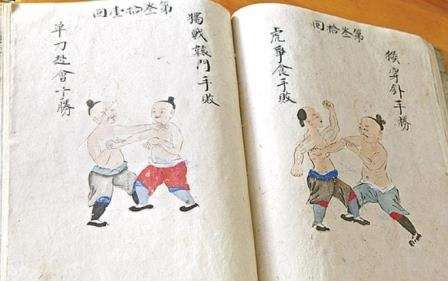 第叁拾回
猴穿針手勝
虎爭食手敗
第叁拾壹回
獨戰轅門手敗
单刀赴會手勝